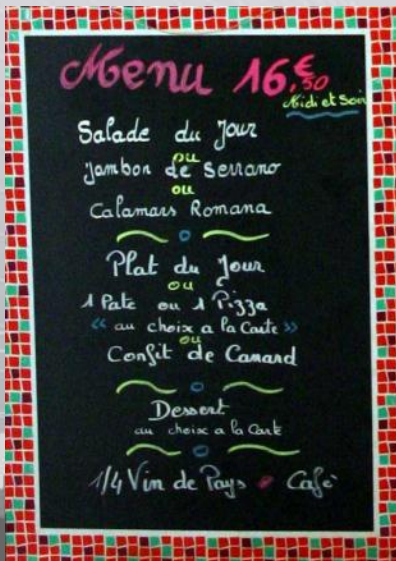 Menu 16,€50
Midi et Soir
Salade du Jour
ou
Jambon de Serrano
ou
Calamars Romana
Plat du Jour
ou
1 Pate ou 1 Pizza
"au choix a la Carte"
ou
Confit de Canard
Dessert
au choix a la Carte
1/4 Vin de Pays Café